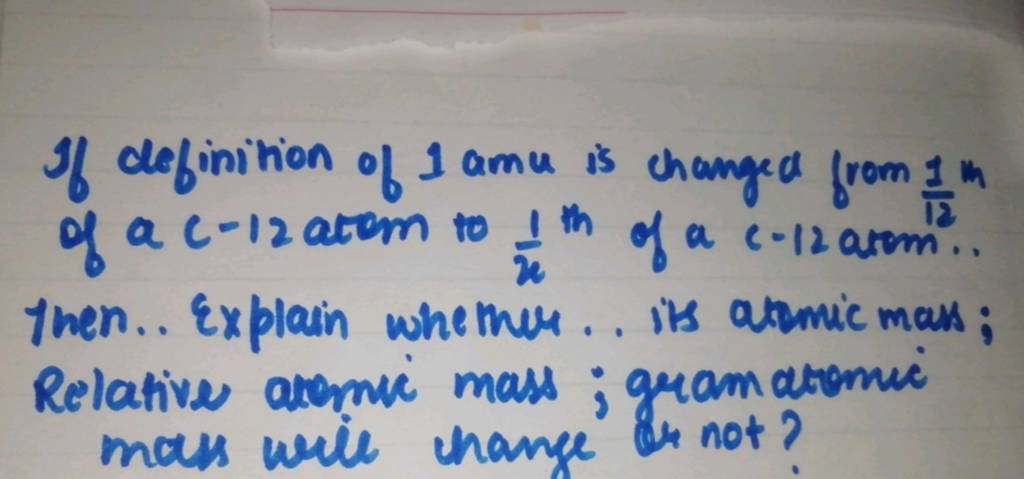 If definition of 1 amu is changed from 1/12 th
of a C-12 atom to 1/x th of a C-12 atom..
Then.. Explain whether.. its atomic mass;
Relative atomic mass; gram atomic
mass will change or not?